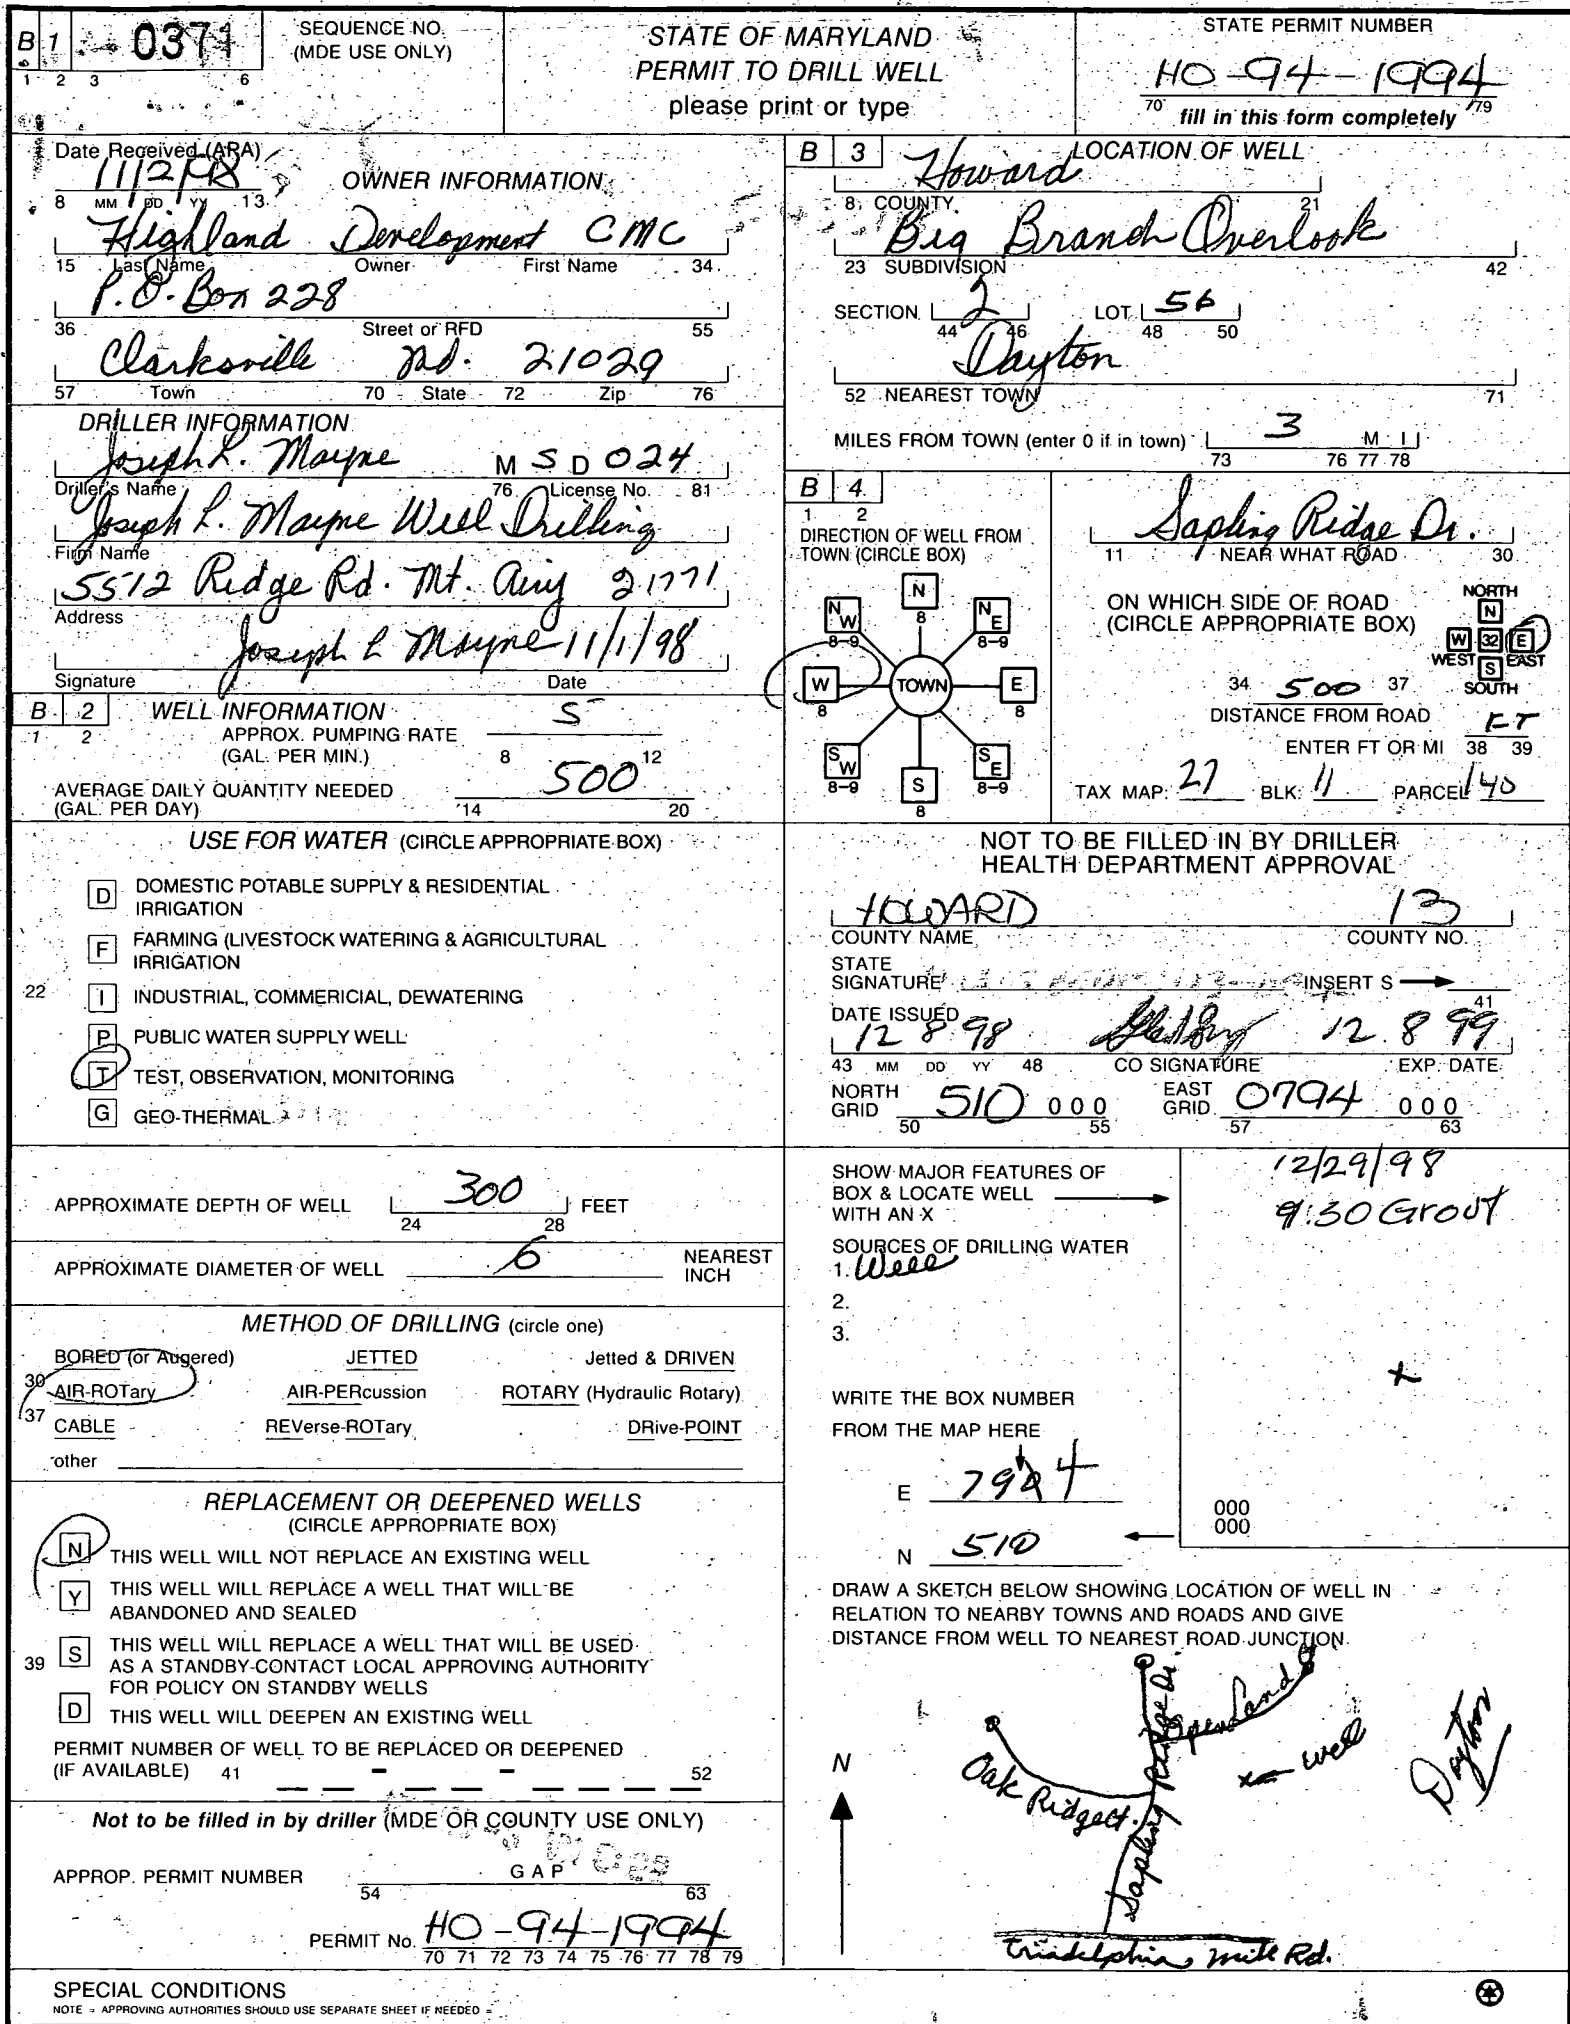 B 1 0371 SEQUENCE NO. (MDE USE ONLY)
1 2 3 6
STATE OF MARYLAND
PERMIT TO DRILL WELL
please print or type
STATE PERMIT NUMBER
HO-94-1994
70 79
fill in this form completely
Date Received (ARA)
11/2/98
8 MM DD YY 13
OWNER INFORMATION
Highland Development CMC
15 Last Name Owner First Name 34
P.O. Box 228
36 Street or RFD 55
Clarksville Md. 21029
57 Town 70 State 72 Zip 76
DRILLER INFORMATION
Joseph L. Mayne M S D 024
Driller's Name 76 License No. 81
Joseph L. Mayne Well Drilling
Firm Name
5512 Ridge Rd. Mt. Airy 21771
Address
Joseph L Mayne 11/1/98
Signature Date
B 2 WELL INFORMATION
1 2
APPROX. PUMPING RATE (GAL. PER MIN.) 5
8 12
AVERAGE DAILY QUANTITY NEEDED (GAL. PER DAY) 500
14 20
USE FOR WATER (CIRCLE APPROPRIATE BOX)
D DOMESTIC POTABLE SUPPLY & RESIDENTIAL IRRIGATION
F FARMING (LIVESTOCK WATERING & AGRICULTURAL IRRIGATION
22 I INDUSTRIAL, COMMERICIAL, DEWATERING
P PUBLIC WATER SUPPLY WELL
T TEST, OBSERVATION, MONITORING
G GEO-THERMAL
APPROXIMATE DEPTH OF WELL 300 FEET
24 28
APPROXIMATE DIAMETER OF WELL 6 NEAREST INCH
METHOD OF DRILLING (circle one)
BORED (or Augered) JETTED Jetted & DRIVEN
30 AIR-ROTary AIR-PERcussion ROTARY (Hydraulic Rotary)
37 CABLE REVerse-ROTary DRive-POINT
other
REPLACEMENT OR DEEPENED WELLS
(CIRCLE APPROPRIATE BOX)
N THIS WELL WILL NOT REPLACE AN EXISTING WELL
Y THIS WELL WILL REPLACE A WELL THAT WILL BE ABANDONED AND SEALED
39 S THIS WELL WILL REPLACE A WELL THAT WILL BE USED AS A STANDBY-CONTACT LOCAL APPROVING AUTHORITY FOR POLICY ON STANDBY WELLS
D THIS WELL WILL DEEPEN AN EXISTING WELL
PERMIT NUMBER OF WELL TO BE REPLACED OR DEEPENED
(IF AVAILABLE) 41 - - 52
Not to be filled in by driller (MDE OR COUNTY USE ONLY)
APPROP. PERMIT NUMBER G A P
54 63
PERMIT No. HO-94-1994
70 71 72 73 74 75 76 77 78 79
SPECIAL CONDITIONS
NOTE = APPROVING AUTHORITIES SHOULD USE SEPARATE SHEET IF NEEDED =
B 3 LOCATION OF WELL
Howard
8 COUNTY 21
Big Branch Overlook
23 SUBDIVISION 42
SECTION 2 LOT 56
44 46 48 50
Dayton
52 NEAREST TOWN 71
MILES FROM TOWN (enter 0 if in town) 3 M I
73 76 77 78
B 4
1 2
DIRECTION OF WELL FROM TOWN (CIRCLE BOX)
N 8
NW 8-9 NE 8-9
W 8 TOWN E 8
SW 8-9 SE 8-9
S 8
Sapling Ridge Dr.
11 NEAR WHAT ROAD 30
ON WHICH SIDE OF ROAD (CIRCLE APPROPRIATE BOX)
NORTH N
W 32 E
WEST EAST
S SOUTH
34 500 37
DISTANCE FROM ROAD
ENTER FT OR MI FT
38 39
TAX MAP: 27 BLK: 11 PARCEL 140
NOT TO BE FILLED IN BY DRILLER
HEALTH DEPARTMENT APPROVAL
HOWARD 13
COUNTY NAME COUNTY NO.
STATE SIGNATURE INSERT S
41
DATE ISSUED
12 8 98 12 8 99
43 MM DD YY 48 CO SIGNATURE EXP. DATE
NORTH GRID 510 000 EAST GRID 0794 000
50 55 57 63
SHOW MAJOR FEATURES OF BOX & LOCATE WELL WITH AN X
12/29/98
9:30 Grout
SOURCES OF DRILLING WATER
1. Well
2.
3.
X
WRITE THE BOX NUMBER
FROM THE MAP HERE
E 7994
N 510
000
000
DRAW A SKETCH BELOW SHOWING LOCATION OF WELL IN RELATION TO NEARBY TOWNS AND ROADS AND GIVE DISTANCE FROM WELL TO NEAREST ROAD JUNCTION.
N
Oak Ridge Ct.
Sapling Ridge Dr.
Open Land
x well
Dayton
Triadelphia Mill Rd.